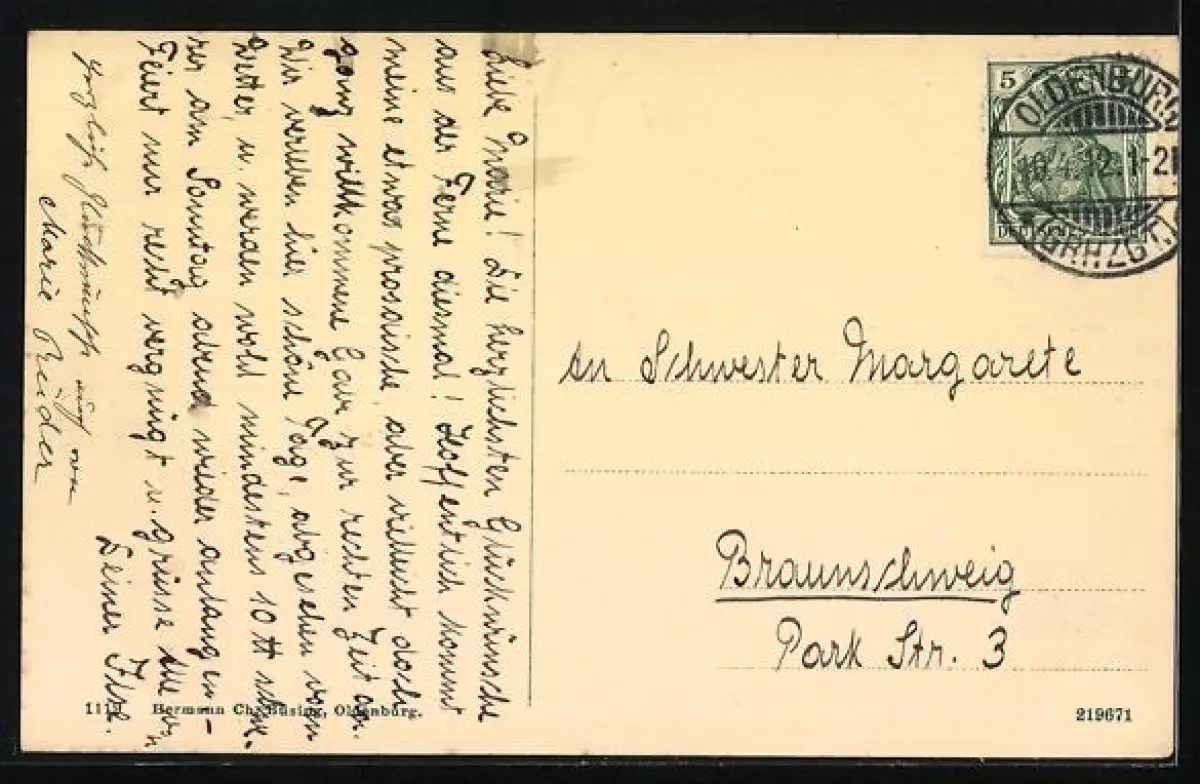 Liebe Marie! Die herzlichsten Glückwünsche
aus der Ferne diesmal! Hoffentlich kommt
meine etwas prosaische, aber vielleicht doch
ganz willkommene Gabe zur rechten Zeit an.
Wir verleben hier schöne Tage, abgesehen vom
Wetter, u. werden wohl mindestens 10 ℔
rer am Sonntag abend wieder anlangen-
Feiert nur recht vergnügt u. grüsse
Deiner Ilse.
von
Marie Rüder
5
OLDENBURG
10.4.12.1-2N
(GRHZGT.)
DEUTSCHES REICH
An Schwester Margarete
Braunschweig
Park Str. 3
Hermann Ch. Büsing, Oldenburg.
219671